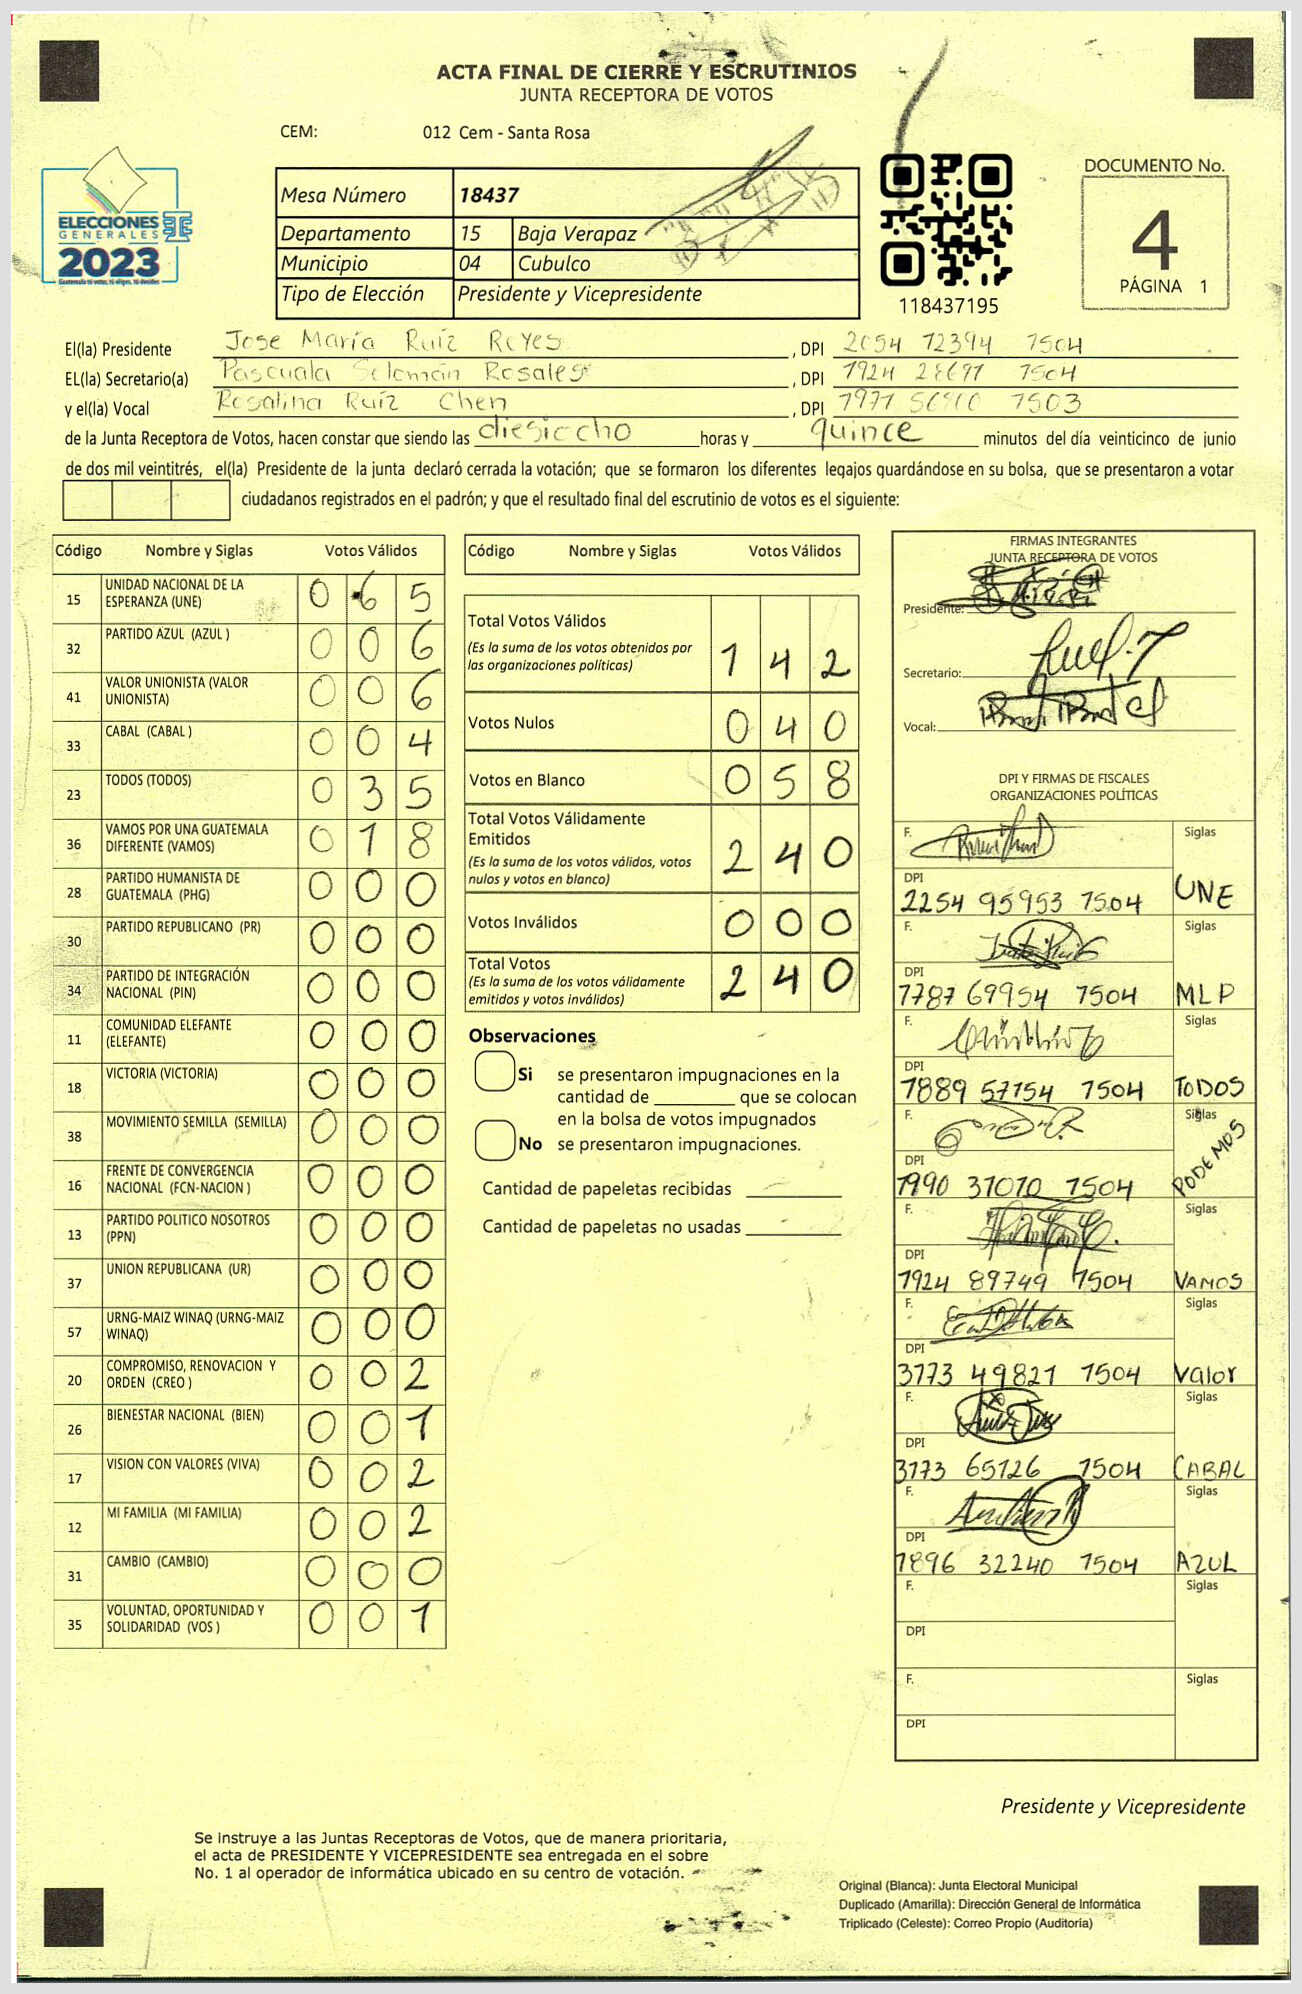 ACTA FINAL DE CIERRE Y ESCRUTINIOS
JUNTA RECEPTORA DE VOTOS
CEM: 012 Cem - Santa Rosa
ELECCIONES
GENERALES
2023
Guatemala tú votas, tú eliges, tú decides
Mesa Número 18437
Departamento 15 Baja Verapaz
Municipio 04 Cubulco
Tipo de Elección Presidente y Vicepresidente
118437195
DOCUMENTO No.
4
PÁGINA 1
El(la) Presidente Jose María Ruíz Reyes, DPI 2054 12394 1504
EL(la) Secretario(a) Pascuala Solomán Rosales, DPI 1924 1504
y el(la) Vocal Rosalina Ruíz Chen, DPI 1503
de la Junta Receptora de Votos, hacen constar que siendo las diesiocho horas y quince minutos del día veinticinco de junio
de dos mil veintitrés, el(la) Presidente de la junta declaró cerrada la votación; que se formaron los diferentes legajos quardándose en su bolsa, que se presentaron a votar
ciudadanos registrados en el padrón; y que el resultado final del escrutinio de votos es el siguiente:
Código Nombre y Siglas Votos Válidos
15 UNIDAD NACIONAL DE LA ESPERANZA (UNE) 0 6 5
32 PARTIDO AZUL (AZUL ) 0 0 6
41 VALOR UNIONISTA (VALOR UNIONISTA) 0 0 6
33 CABAL (CABAL ) 0 0 4
23 TODOS (TODOS) 0 3 5
36 VAMOS POR UNA GUATEMALA DIFERENTE (VAMOS) 0 1 8
28 PARTIDO HUMANISTA DE GUATEMALA (PHG) 0 0 0
30 PARTIDO REPUBLICANO (PR) 0 0 0
34 PARTIDO DE INTEGRACIÓN NACIONAL (PIN) 0 0 0
11 COMUNIDAD ELEFANTE (ELEFANTE) 0 0 0
18 VICTORIA (VICTORIA) 0 0 0
38 MOVIMIENTO SEMILLA (SEMILLA) 0 0 0
16 FRENTE DE CONVERGENCIA NACIONAL (FCN-NACION ) 0 0 0
13 PARTIDO POLITICO NOSOTROS (PPN) 0 0 0
37 UNION REPUBLICANA (UR) 0 0 0
57 URNG-MAIZ WINAQ (URNG-MAIZ WINAQ) 0 0 0
20 COMPROMISO, RENOVACION Y ORDEN (CREO ) 0 0 2
26 BIENESTAR NACIONAL (BIEN) 0 0 1
17 VISION CON VALORES (VIVA) 0 0 2
12 MI FAMILIA (MI FAMILIA) 0 0 2
31 CAMBIO (CAMBIO) 0 0 0
35 VOLUNTAD, OPORTUNIDAD Y SOLIDARIDAD (VOS ) 0 0 1
Código Nombre y Siglas Votos Válidos
Total Votos Válidos
(Es la suma de los votos obtenidos por
las organizaciones políticas) 1 4 2
Votos Nulos 0 4 0
Votos en Blanco 0 5 8
Total Votos Válidamente
Emitidos
(Es la suma de los votos válidos, votos
nulos y votos en blanco) 2 4 0
Votos Inválidos 0 0 0
Total Votos
(Es la suma de los votos válidamente
emitidos y votos inválidos) 2 4 0
Observaciones
Si se presentaron impugnaciones en la
cantidad de ________ que se colocan
en la bolsa de votos impugnados
No se presentaron impugnaciones.
Cantidad de papeletas recibidas
Cantidad de papeletas no usadas
FIRMAS INTEGRANTES
JUNTA RECEPTORA DE VOTOS
Presidente:
Secretario:
Vocal:
DPI Y FIRMAS DE FISCALES
ORGANIZACIONES POLÍTICAS
F. Siglas
DPI 2254 95953 1504 UNE
F. Siglas
DPI 1787 69954 1504 MLP
F. Siglas
DPI 1889 57154 1504 TODOS
F. Siglas
DPI 1990 31010 1504 PODEMOS
F. Siglas
DPI 1924 89749 1504 VAMOS
F. Siglas
DPI 3173 49821 1504 Valor
F. Siglas
DPI 3173 65126 1504 CABAL
F. Siglas
DPI 1896 32240 1504 AZUL
F. Siglas
DPI
F. Siglas
DPI
Presidente y Vicepresidente
Se instruye a las Juntas Receptoras de Votos, que de manera prioritaria,
el acta de PRESIDENTE Y VICEPRESIDENTE sea entregada en el sobre
No. 1 al operador de informática ubicado en su centro de votación.
Original (Blanca): Junta Electoral Municipal
Duplicado (Amarilla): Dirección General de Informática
Triplicado (Celeste): Correo Propio (Auditoría)